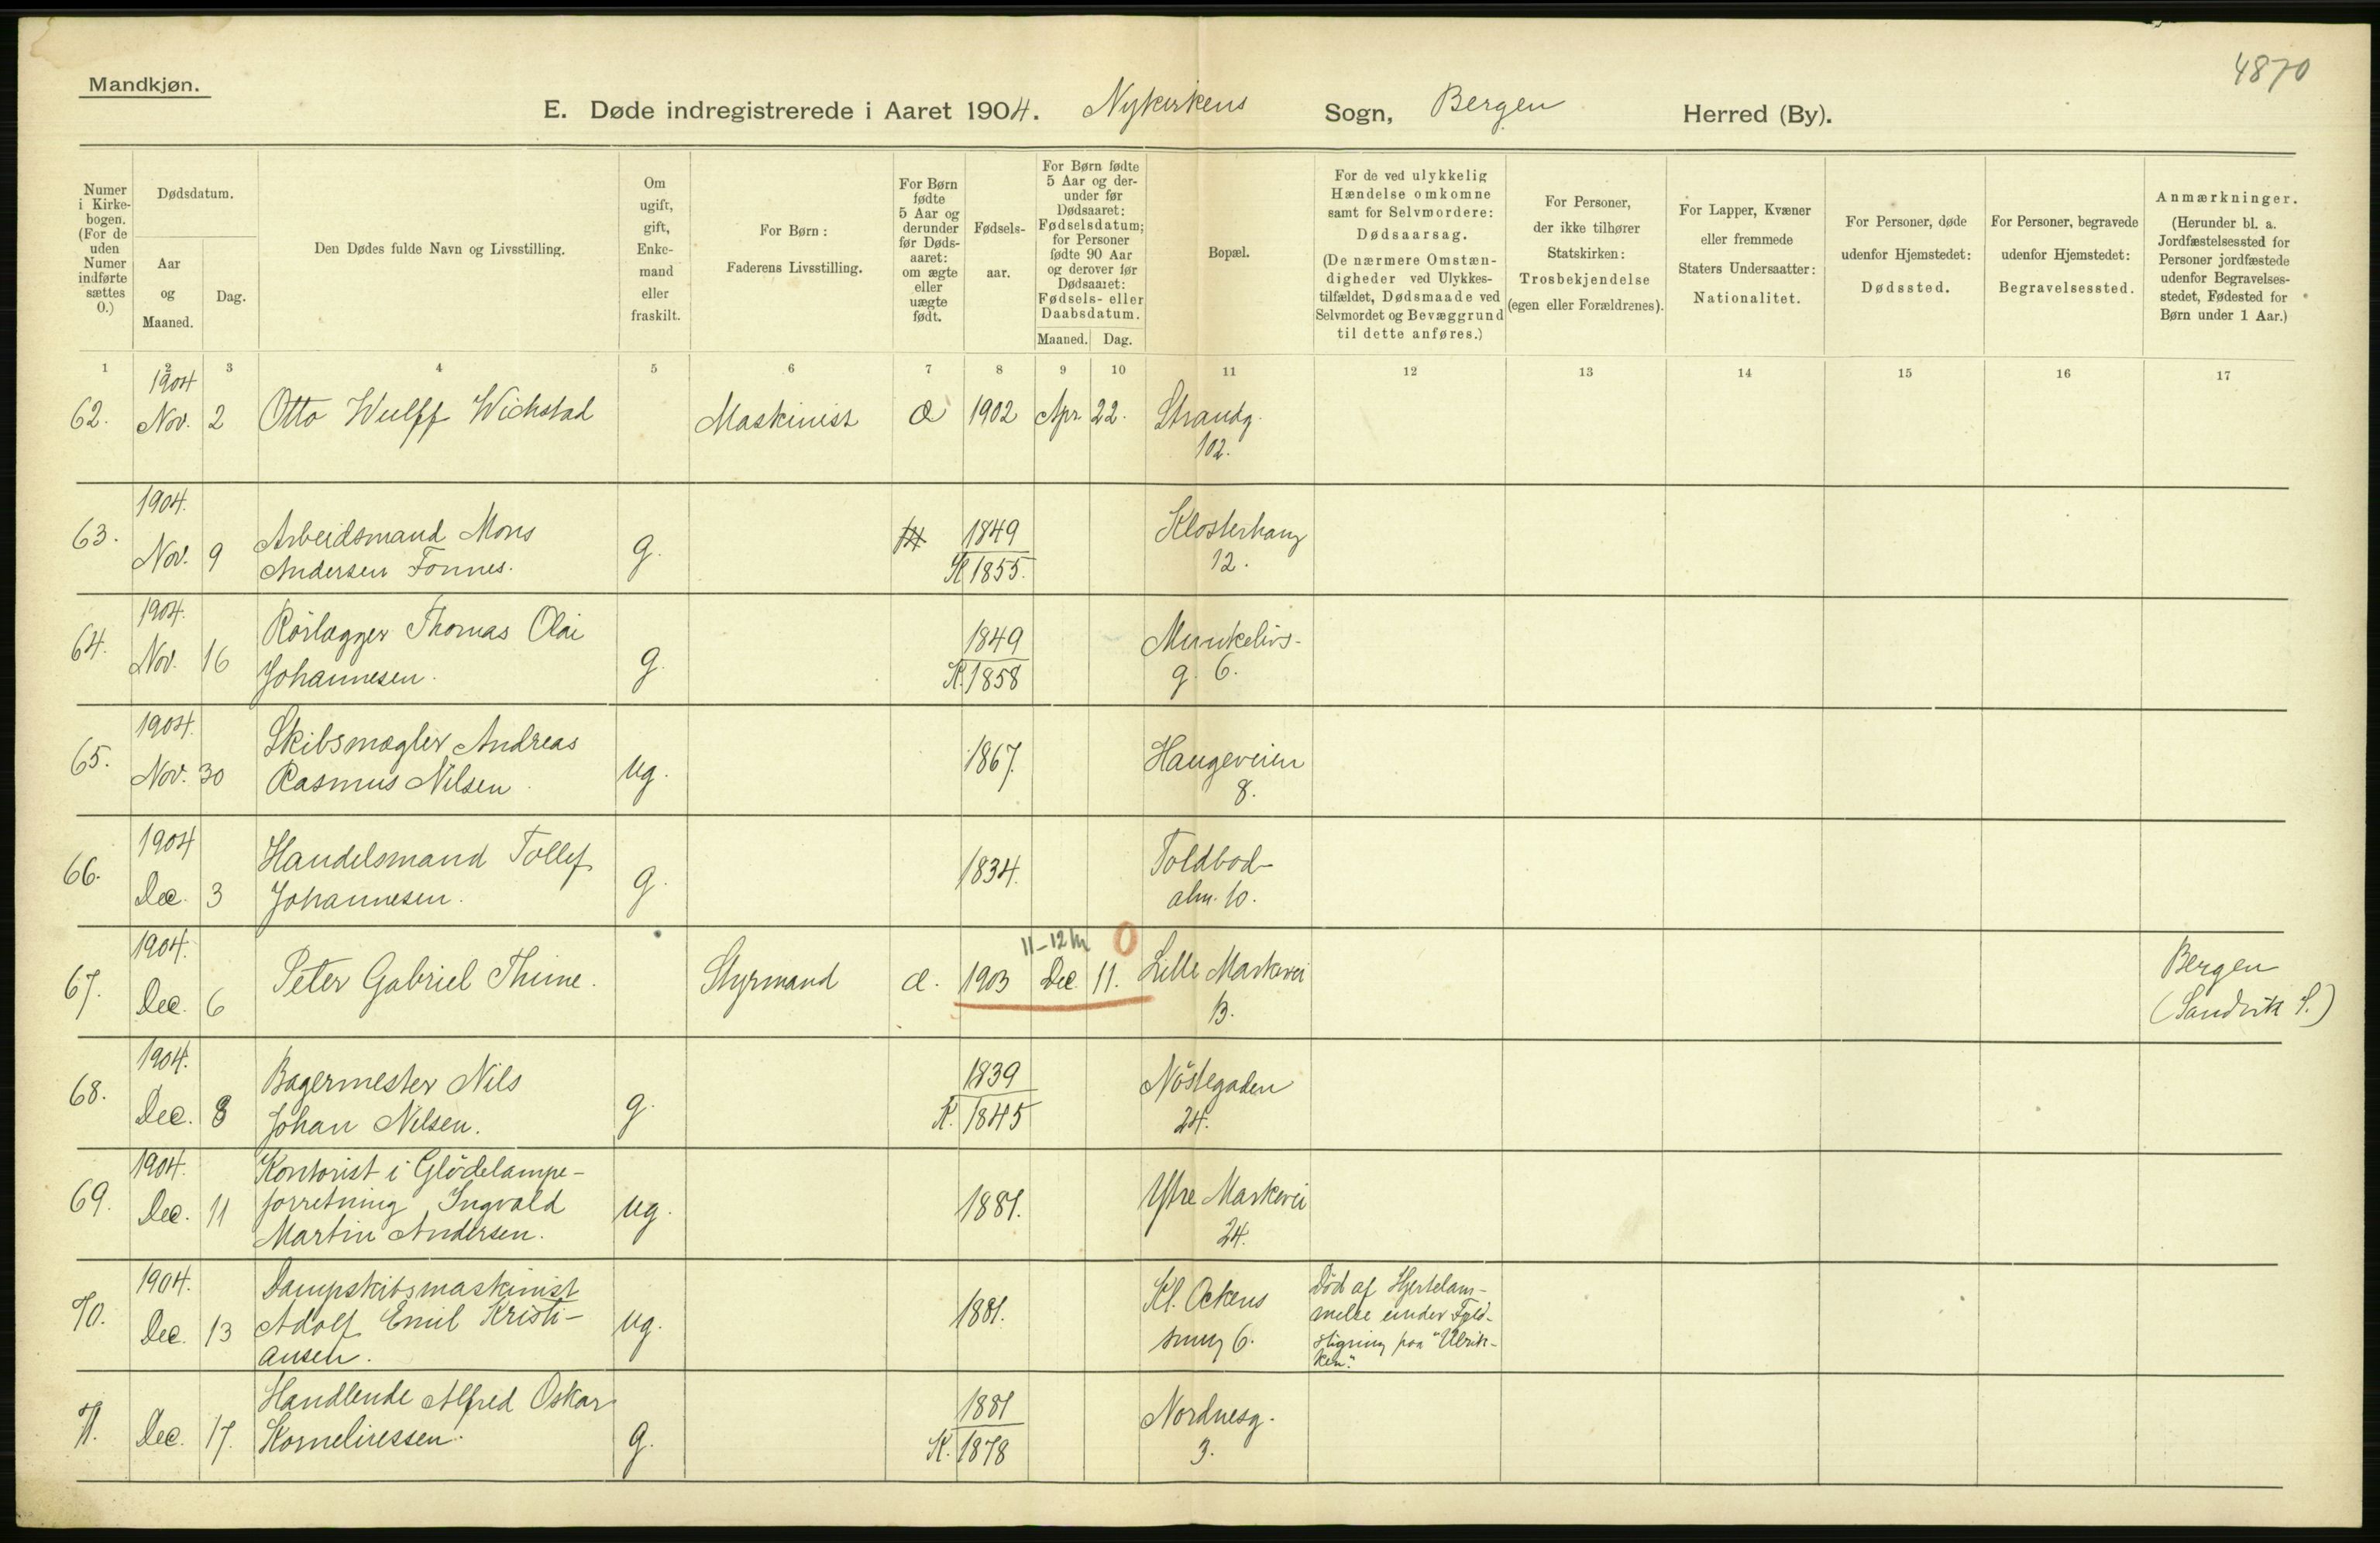 4870
Mandkjøn.
E. Døde indregistrerede i Aaret 1904. Nykirkens Sogn, Bergen Herred (By).
Numer i Kirkebogen. (For de uden Numer indførte sættes 0.)
Dødsdatum.
Aar og Maaned.
Dag.
Den Dødes fulde Navn og Livsstilling.
Om ugift, gift, Enkemand eller fraskilt.
For Børn:
Faderens Livsstilling.
For Børn fødte 5 Aar og derunder før Dødsaaret: om ægte eller uægte født.
Fødselsaar.
For Børn fødte 5 Aar og derunder før Dødsaaret: Fødselsdatum; for Personer fødte 90 Aar og derover før Dødsaaret: Fødsels- eller Daabsdatum.
Maaned. Dag.
Bopæl.
For de ved ulykkelig Hændelse omkomne samt for Selvmordere: Dødsaarsag. (De nærmere Omstændigheder ved Ulykkestilfældet, Dødsmaade ved Selvmordet og Bevæggrund til dette anføres.)
For Personer, der ikke tilhører Statskirken: Trosbekjendelse (egen eller Forældrenes).
For Lapper, Kvæner eller fremmede Staters Undersaatter: Nationalitet.
For Personer, døde udenfor Hjemstedet: Dødssted.
For Personer, begravede udenfor Hjemstedet: Begravelsessted.
Anmærkninger. (Herunder bl. a. Jordfæstelsessted for Personer jordfæstede udenfor Begravelsesstedet, Fødested for Børn under 1 Aar.)
1 2 3 4 5 6 7 8 9 10 11 12 13 14 15 16 17
1904
62. Nov. 2 Otto Wulff Wichstad Maskinist æ 1902 Apr. 22. Strandg.
102.
1904.
63. Nov. 9 Arbeidsmand Mons g. 1849 Klosterhaug
Andersen Fonnes. K 1855. 12.
1904.
64. Nov. 16 Rörlægger Thomas Olai g. 1849 Munkelivs-
Johannesen. K. 1858 g. 6.
1904.
65. Nov. 30 Skibsmægler Andreas ug. 1867. Haugeveien
Rasmus Nilsen 8.
1904
66. Dec. 3 Handelsmand Tollef g. 1834. Toldbod-
Johannesen. alm. 10.
1904. 11-12 0
67. Dec. 6 Peter Gabriel Thime. Styrmand æ. 1903 Dec. 11. Lille Markevei Bergen
13. (Sandvik S.)
1904.
68. Dec. 8 Bagermester Nils g. 1839 Nöstegaden
Johan Nilsen. K. 1845 24.
1904. Kontorist i Glödelampe-
69. Dec. 11 forretning Ingvald ug. 1881. Ytre Markevei
Martin Andersen. 24.
1904. Dampskibsmaskinist Död af Hjertelam-
70. Dec. 13 Adolf Emil Kristi- ug. 1881. Kl. Ockens melse under Fjeld-
ansen. smug 6. stigning paa "Ulrik-
ken".
Handlende Alfred Oskar 1881 Nordnesg.
71. Dec. 17. Korneliussen. g. K. 1878 3.